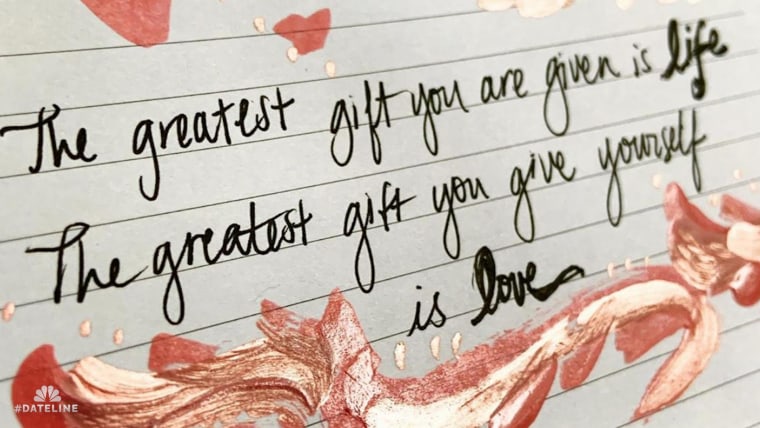 The greatest gift you are given is life
The greatest gift you give yourself
is love
#DATELINE